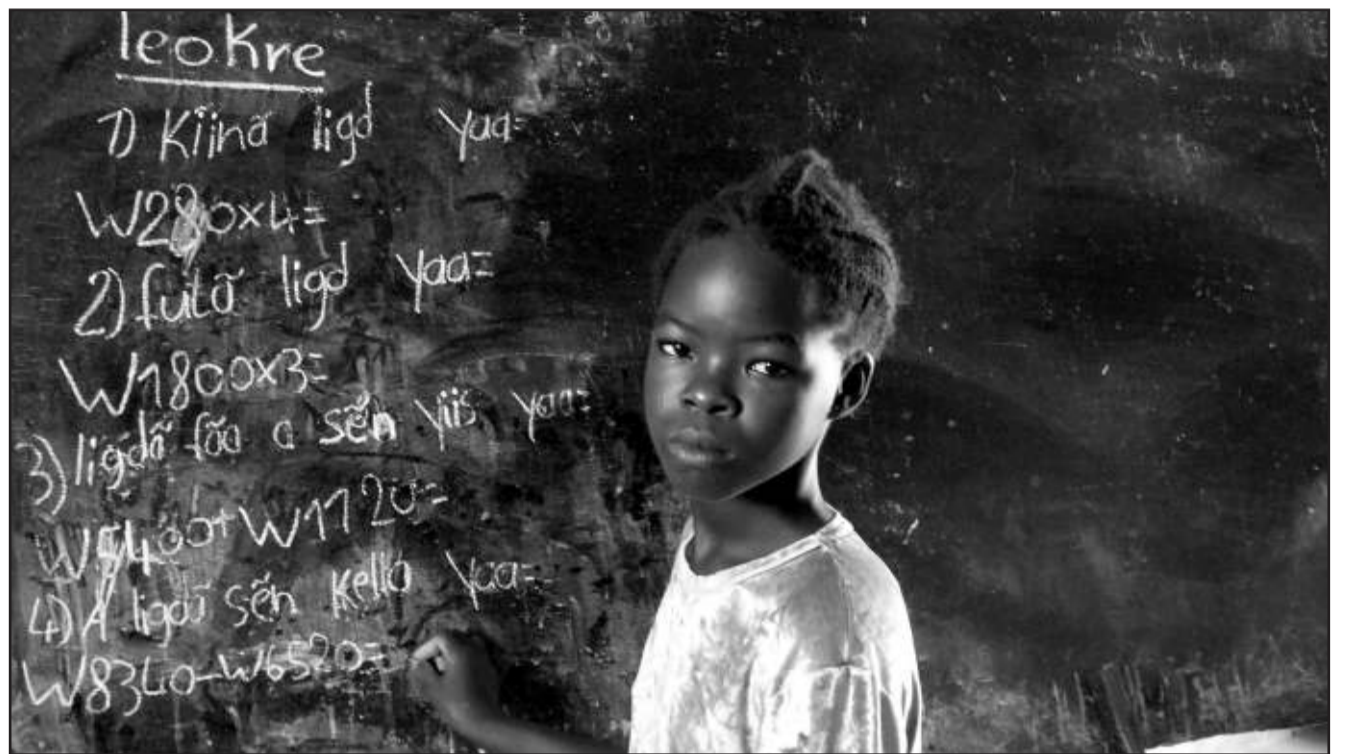 leokre
1) Kiinã ligd yaa=
W280x4=
2) futã ligd yaa=
W1800x3=
3) ligdã fãa a sẽn yiis yaa=
W5400+W1120=
4) A ligdĩ sẽn kella yaa=
W8340-W6520=